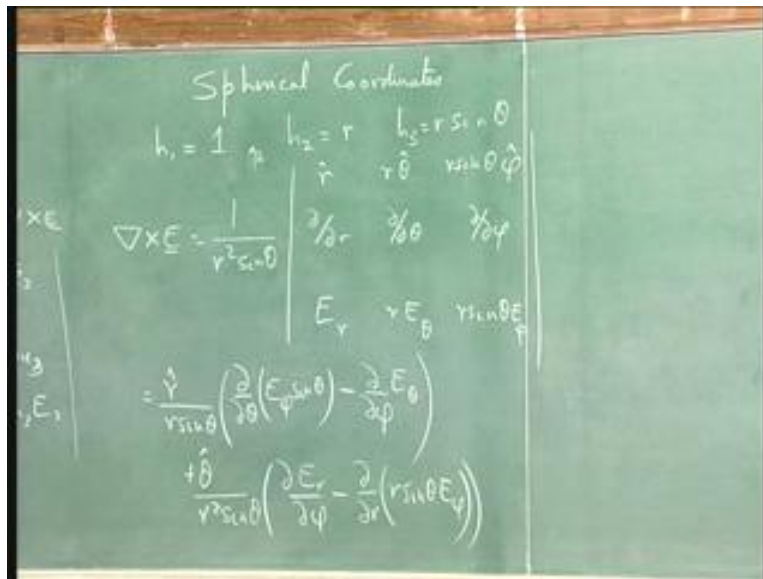 Spherical Coordinates
h₁ = 1, h₂ = r h₃ = r sin θ
r̂ r θ̂ r sin θ φ̂
∇×E = 1/(r² sin θ) | ∂/∂r ∂/∂θ ∂/∂φ |
E_r r E_θ r sin θ E_φ
= r̂/(r sin θ) (∂/∂θ (E_φ sin θ) − ∂/∂φ E_θ)
+ θ̂/(r² sin θ) (∂E_r/∂φ − ∂/∂r (r sin θ E_φ))